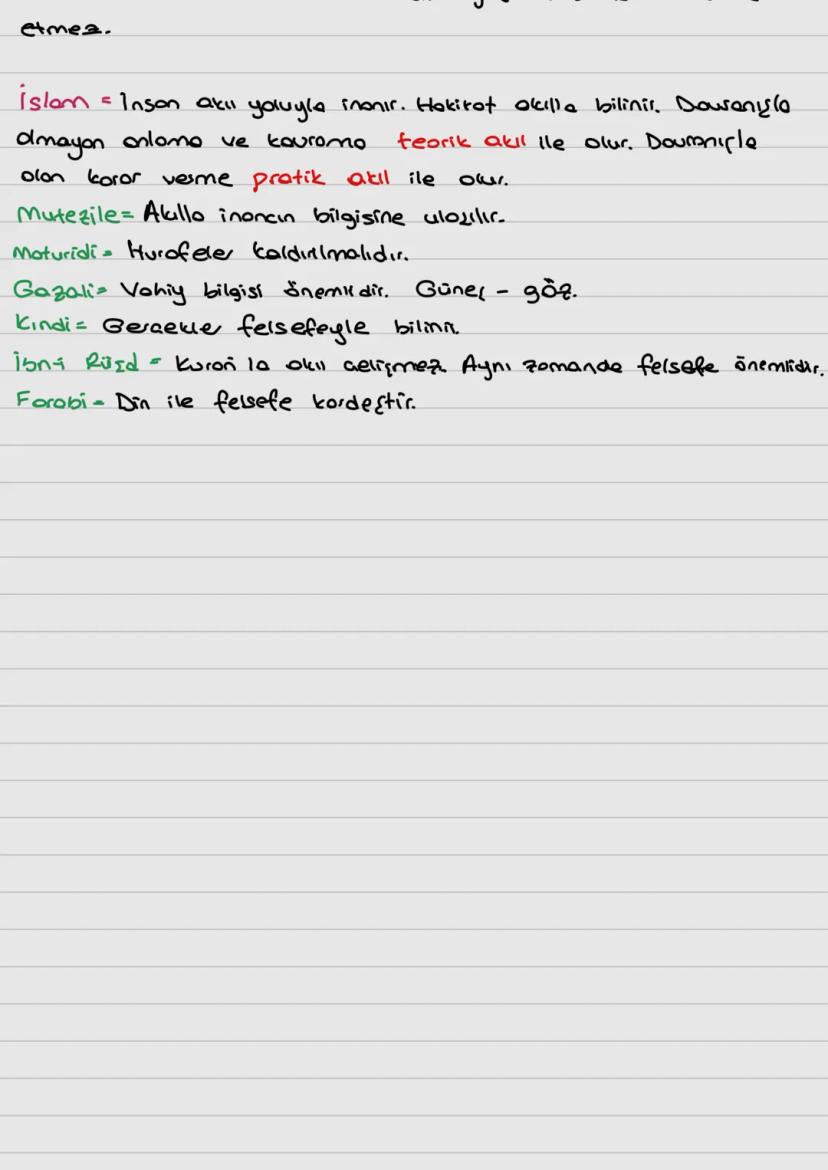 etmez.
İslam = İnsan akıl yoluyla inanır. Hakikat akılla bilinir. Davranışla
olmayan anlama ve kavrama teorik akıl ile olur. Davranışla
olan karar verme pratik akıl ile olur.
Mutezile = Akılla inancın bilgisine ulaşılır.
Maturidi = Hurafeler kaldırılmalıdır.
Gazali = Vahiy bilgisi önemlidir. Güneş - göz.
Kindi = Gerçekler felsefeyle bilinir.
İbn-i Rüşd = Kuran'la akıl çelişmez. Aynı zamanda felsefe önemlidir.
Farabi = Din ile felsefe kardeştir.